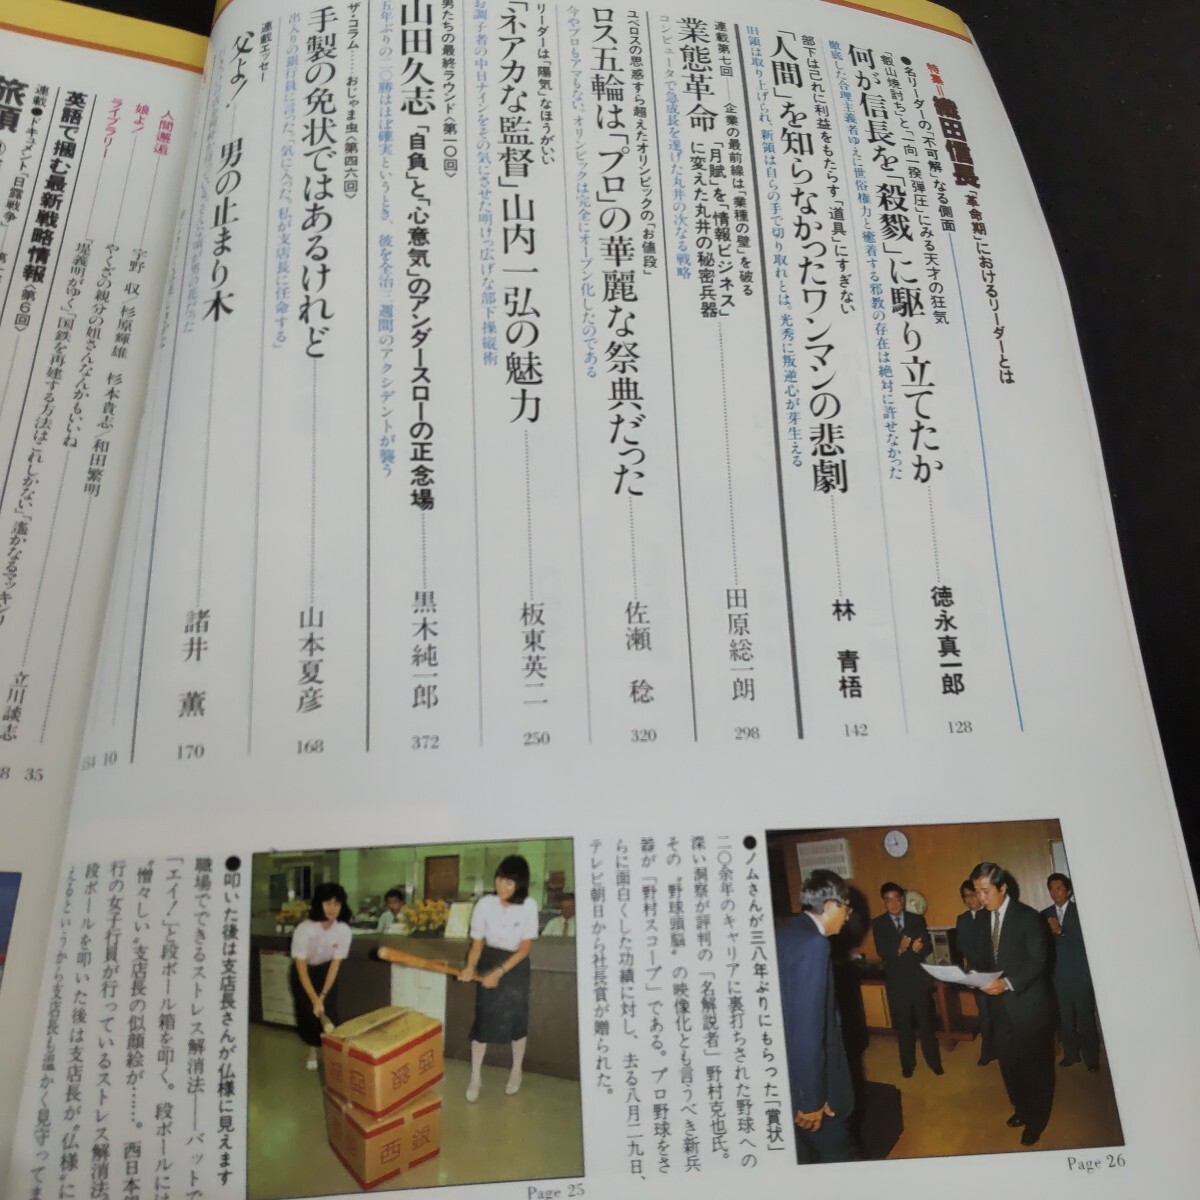 特集=織田信長「革命期」におけるリーダーとは
●名リーダーの「不可解」なる側面
「叡山焼討ち」と「一向一揆弾圧」にみる天才の狂気
何が信長を「殺戮」に駆り立てたか
徳永真一郎
128
徹底した合理主義者ゆえに世俗権力と癒着する邪教の存在は絶対に許せなかった
部下は己れに利益をもたらす「道具」にすぎない
「人間」を知らなかったワンマンの悲劇
林 青梧
142
旧領は取り上げられ、新領は自らの手で切り取れとは。光秀に叛逆心が芽生える
連載第七回──企業の最前線は「業種の壁」を破る
業態革命「月賦」を「情報ビジネス」に変えた丸井の秘密兵器
田原総一朗
298
コンピュータで急成長を遂げた丸井の次なる戦略
ユベロスの思惑すら超えたオリンピックの「お値段」
ロス五輪は「プロ」の華麗な祭典だった
佐瀬 稔
320
今やプロもアマもない。オリンピックは完全にオープン化したのである
リーダーは「陽気」なほうがいい
「ネアカな監督」山内一弘の魅力
板東英二
250
お調子者の中日ナインをその気にさせた明けっ広げな部下操縦術
男たちの最終ラウンド〈第一〇回〉
山田久志「自負」と「心意気」のアンダースローの正念場
黒木純一郎
372
五年ぶりの二〇勝はほぼ確実というとき、彼を全治三週間のアクシデントが襲う
ザ・コラム……おじゃま虫〈第四六回〉
手製の免状ではあるけれど
山本夏彦
168
出入りの銀行員に言った。「気に入った。私が支店長に任命する」
連載エッセー
父よ! 男の止まり木
諸井 薫
170
人間邂逅
宇野 収/杉原輝雄 杉本貴志/和田繁明
10
娘よ!
やくざの親分の姐さんなんかもいいね
立川談志
35
ライブラリー
「是義明がゆく」「国鉄を再建する方法はこれしかない」「遙かなるマッキンリ
英語で掴む最新戦略情報〈第6回〉
連載●ドキュメント「日露戦争」
旅順
●ノムさんが三八年ぶりにもらった「賞状」
二〇余年のキャリアに裏打ちされた野球への
深い洞察が評判の「名解説者」野村克也氏。
その〝野球頭脳〟の映像化とも言うべき新兵
器が「野村スコープ」である。プロ野球をさ
らに面白くした功績に対し、去る八月二九日、
テレビ朝日から社長賞が贈られた。
Page 26
●叩いた後は支店長さんが仏様に見えます
職場でできるストレス解消法──バットで
「エイ!」と段ボール箱を叩く。段ボールには
〝憎々しい〟支店長の似顔絵が……。西日本
行の女子行員が行っているストレス解消法。
段ボールを叩いた後は支店長が〝仏様〟に
Page 25
西銀